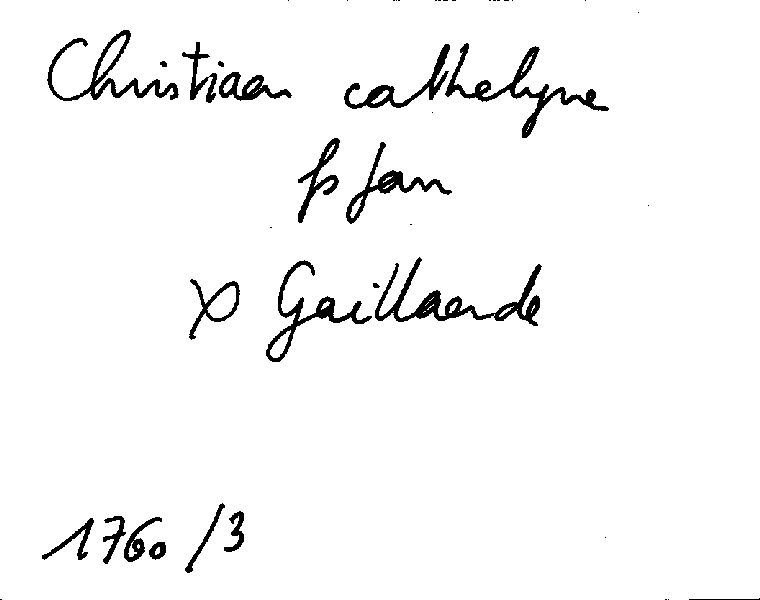 Christiaen cathelyne
fs Jan
x Gaillaerde
1760/3